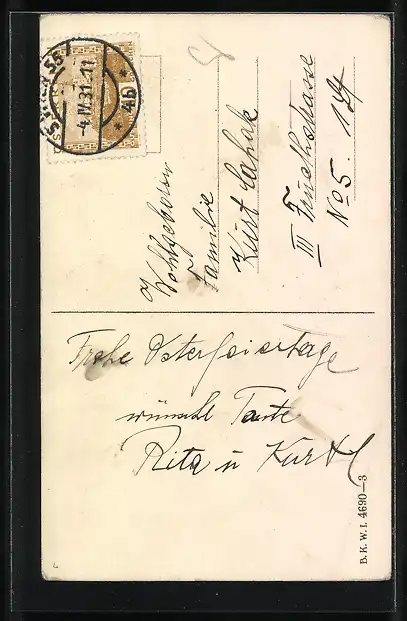 -4.IV.31.11
* 4b *
Wohlgeboren
Familie
Kurt Cahak
III
No 5. 14
Frohe Osterfeiertage
wünscht Tante
Rita u Kurtl
B. K. W. I. 4690—3